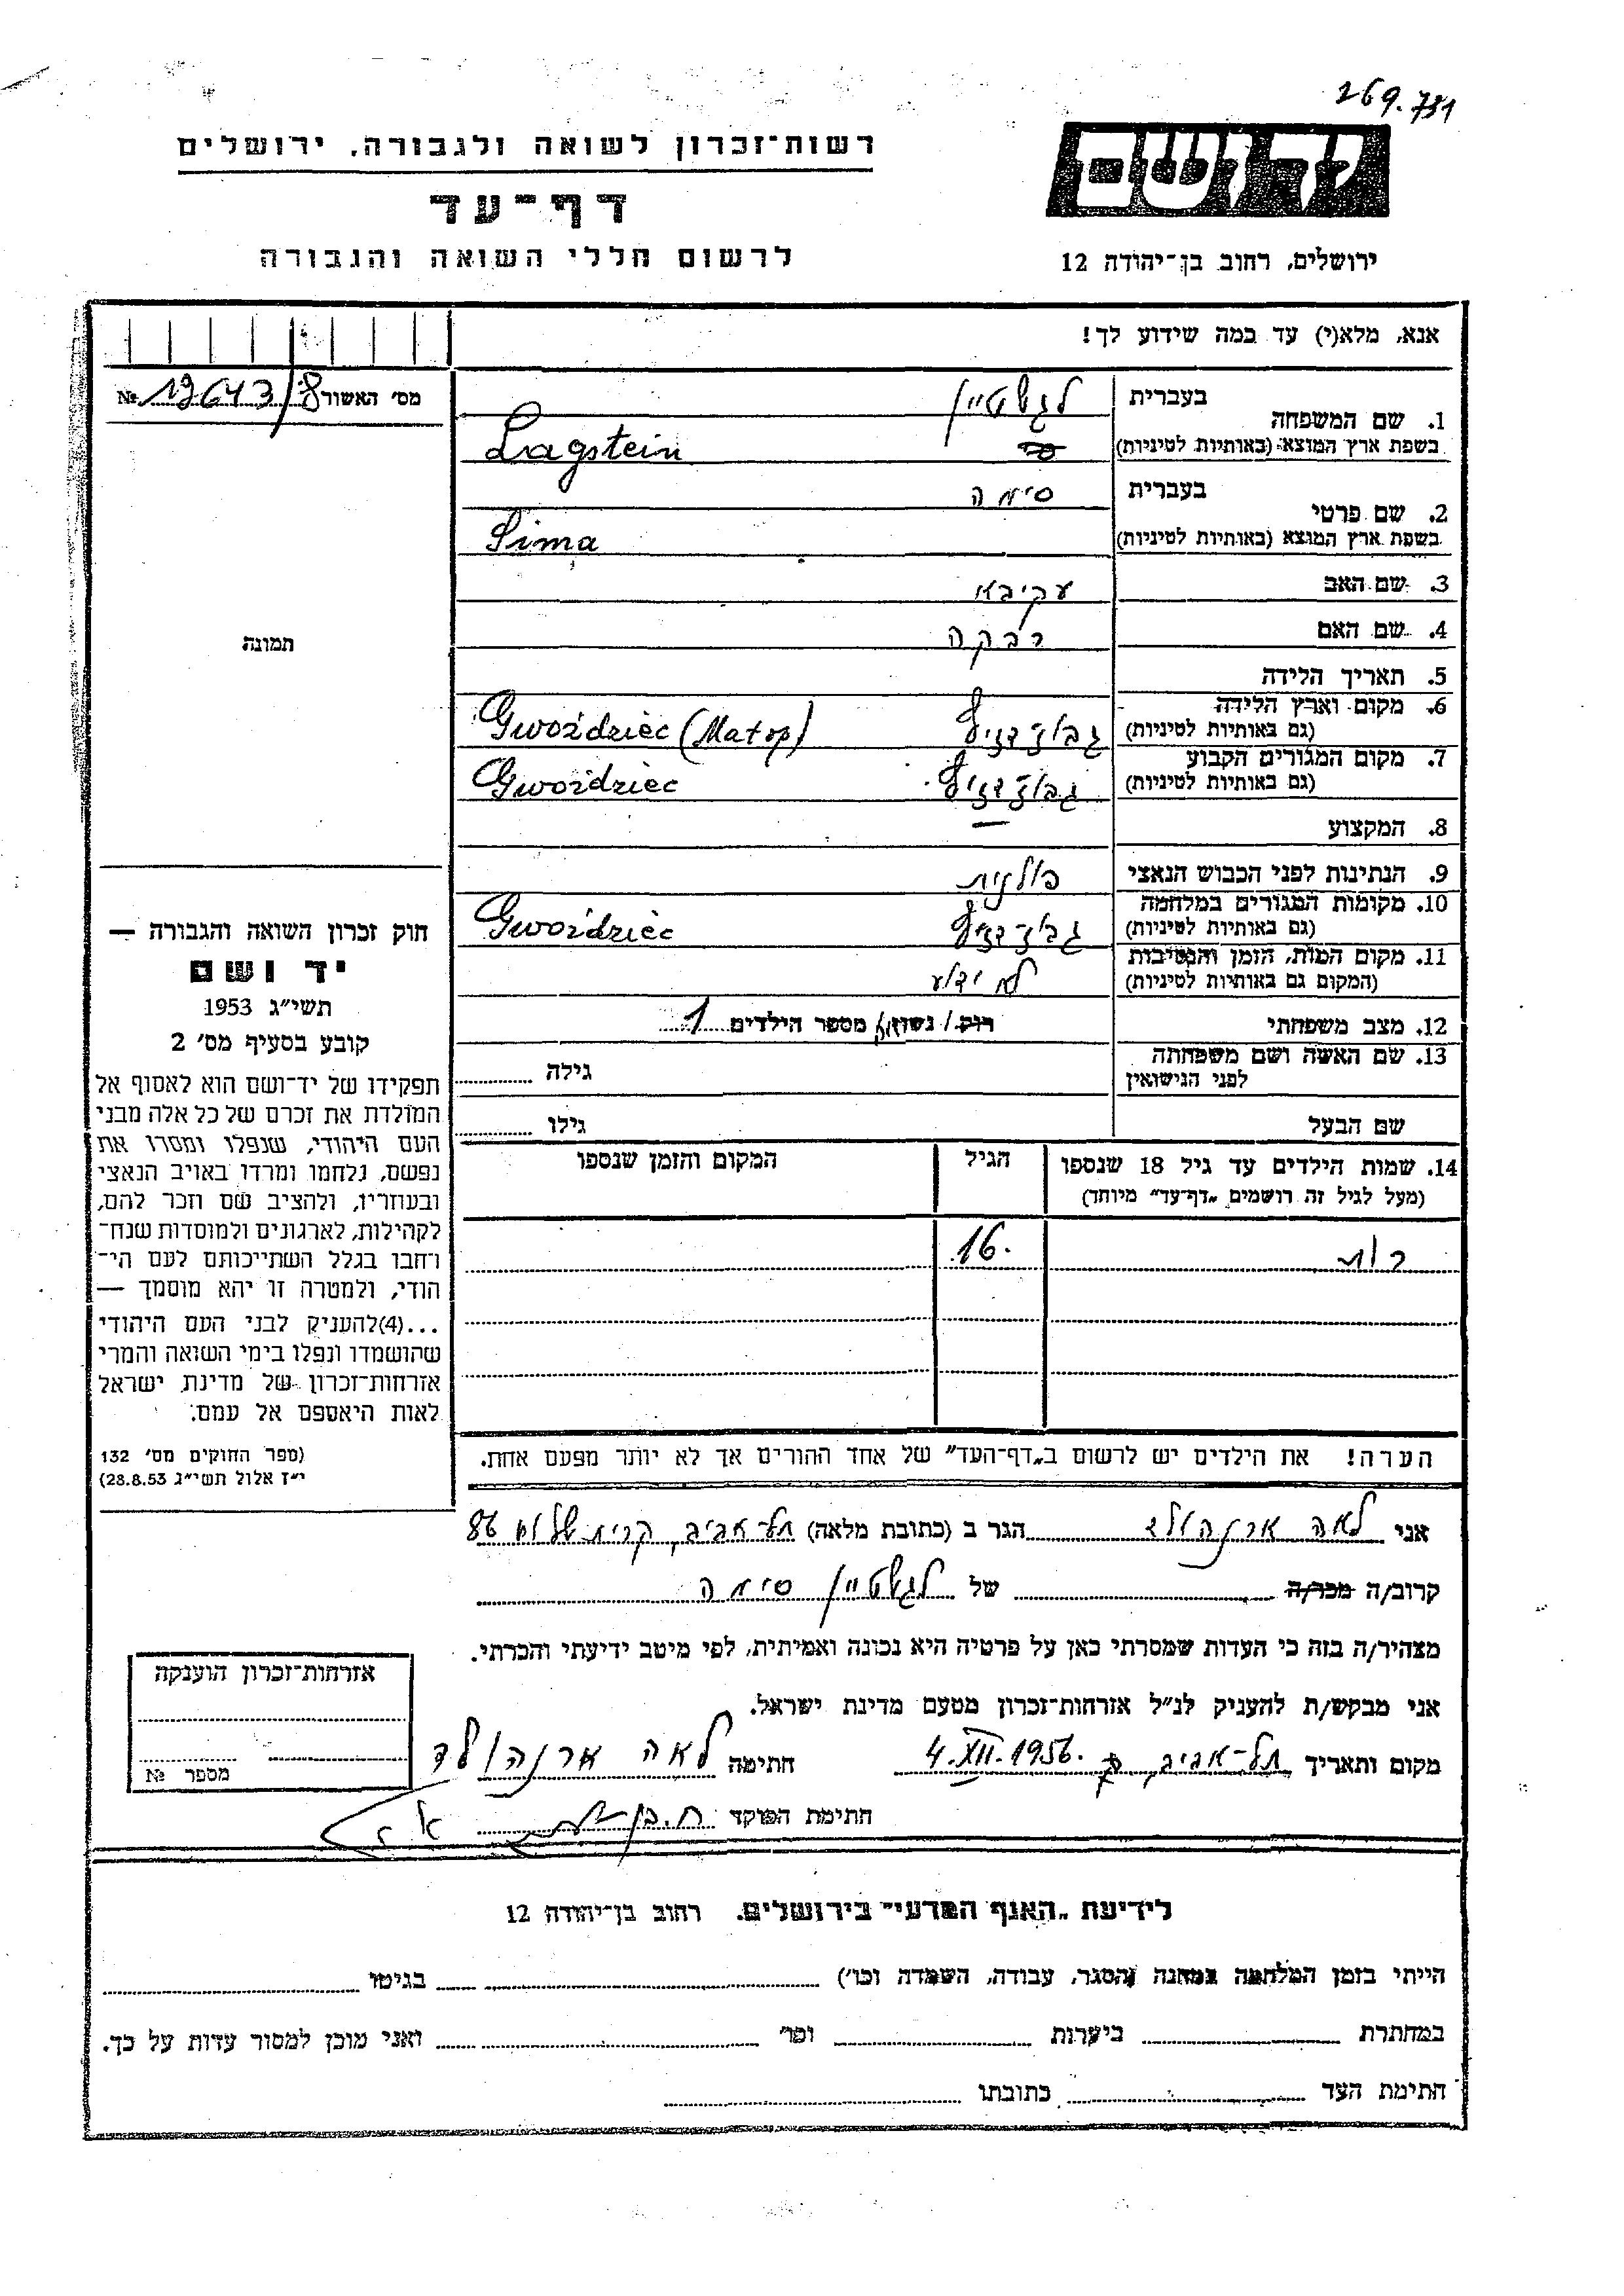 269.731
רשות־זכרון לשואה ולגבורה, ירושלים
יד ושם
דף־עד
לרשום חללי השואה והגבורה
ירושלים, רחוב בן־יהודה 12
אנא, מלא(י) עד כמה שידוע לך!
מס׳ האשור 19643/8 №
1. שם המשפחה בעברית לגשטיין
בשפת ארץ המוצא (באותיות לטיניות) Lagstein
2. שם פרטי בעברית סימה
בשפת ארץ המוצא (באותיות לטיניות) Sima
3. שם האב עקיבא
4. שם האם רבקה
תמונה
5. תאריך הלידה
6. מקום וארץ הלידה
(גם באותיות לטיניות) גבוז׳דזיץ Gwoździec (Małop)
7. מקום המגורים הקבוע
(גם באותיות לטיניות) גבוז׳דזיץ Gwoździec
8. המקצוע —
9. הנתינות לפני הכבוש הנאצי פולנית
10. מקומות המגורים במלחמה
(גם באותיות לטיניות) גבוז׳דזיץ Gwoździec
11. מקום המות, הזמן והנסיבות
(המקום גם באותיות לטיניות) לא ידוע
12. מצב משפחתי רוק/נשוי/אה מספר הילדים 1
13. שם האשה ושם משפחתה
לפני הנישואין גילה
שם הבעל גילו
14. שמות הילדים עד גיל 18 שנספו הגיל המקום והזמן שנספו
(מעל לגיל זה רושמים „דף־עד״ מיוחד)
רות 16.
הערה! את הילדים יש לרשום ב„דף־העד״ של אחד ההורים אך לא יותר מפעם אחת.
חוק זכרון השואה והגבורה —
יד ושם
תשי״ג 1953
קובע בסעיף מס׳ 2
תפקידו של יד־ושם הוא לאסוף אל
המולדת את זכרם של כל אלה מבני
העם היהודי, שנפלו ומסרו את
נפשם, נלחמו ומרדו באויב הנאצי
ובעוזריו, ולהציב שם וזכר להם,
לקהילות, לארגונים ולמוסדות שנח־
רחבו בגלל השתייכותם לעם הי־
הודי, ולמטרה זו יהא מוסמך —
...(4)להעניק לבני העם היהודי
שהושמדו ונפלו בימי השואה והמרי
אזרחות־זכרון של מדינת ישראל
לאות היאספם אל עמם.
(ספר החוקים מס׳ 132
י״ז אלול תשי״ג 28.8.53)
אני לאה ארנהולד הגר ב (כתובת מלאה) תל־אביב, קרית שלום 86
קרוב/ה מכר/ה של לגשטיין סימה
מצהיר/ה בזה כי העדות שמסרתי כאן על פרטיה היא נכונה ואמיתית, לפי מיטב ידיעתי והכרתי.
אני מבקש/ת להעניק לנ״ל אזרחות־זכרון מטעם מדינת ישראל.
מקום ותאריך תל־אביב, 4.XII.1956. חתימה לאה ארנהולד
חתימת הפוקד
אזרחות־זכרון הוענקה
מספר №
לידיעת „האגף המדעי״ בירושלים. רחוב בן־יהודה 12
הייתי בזמן המלחמה במחנה (הסגר, עבודה, השמדה וכו׳) בגיטו
במחתרת ביערות וכו׳ ואני מוכן למסור עדות על כך.
חתימת העד כתובתו